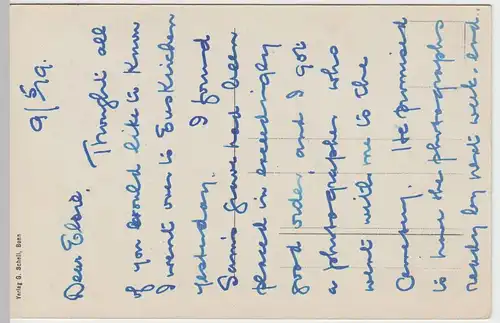 9/5/19.
Dear Elsie.
Thought all
of you would like to know
I went over to Euskirchen
yesterday. I found
Sam's grave had been
placed in exceedingly
good order and I got
a photographer who
went with me to the
Cemetery. He promised
to have the photographs
ready by next week-end.
Verlag G. Scholl, Bonn